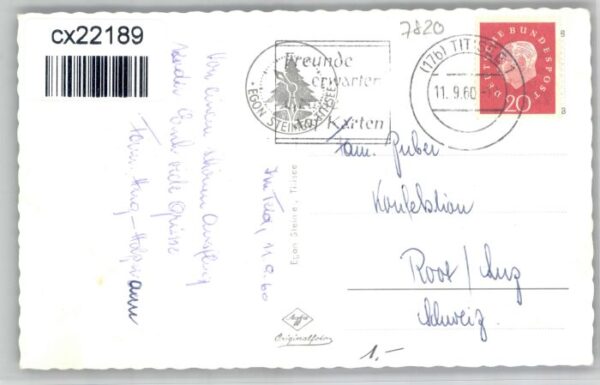 cx22189
7820
Freunde
erwarten
auf Karten
EGON STEINER TITISEE
(17b) TITISEE
11.9.60
DEUTSCHE BUNDESPOST
20
Von einem schönen Ausflug
senden Euch viele Grüsse
Fam. Hug-Hofmann
11.9.60
Egon Steiner, Titisee
Originalfoto
Fam. Huber
Konfektion
Root/Luz
Schweiz
1.-